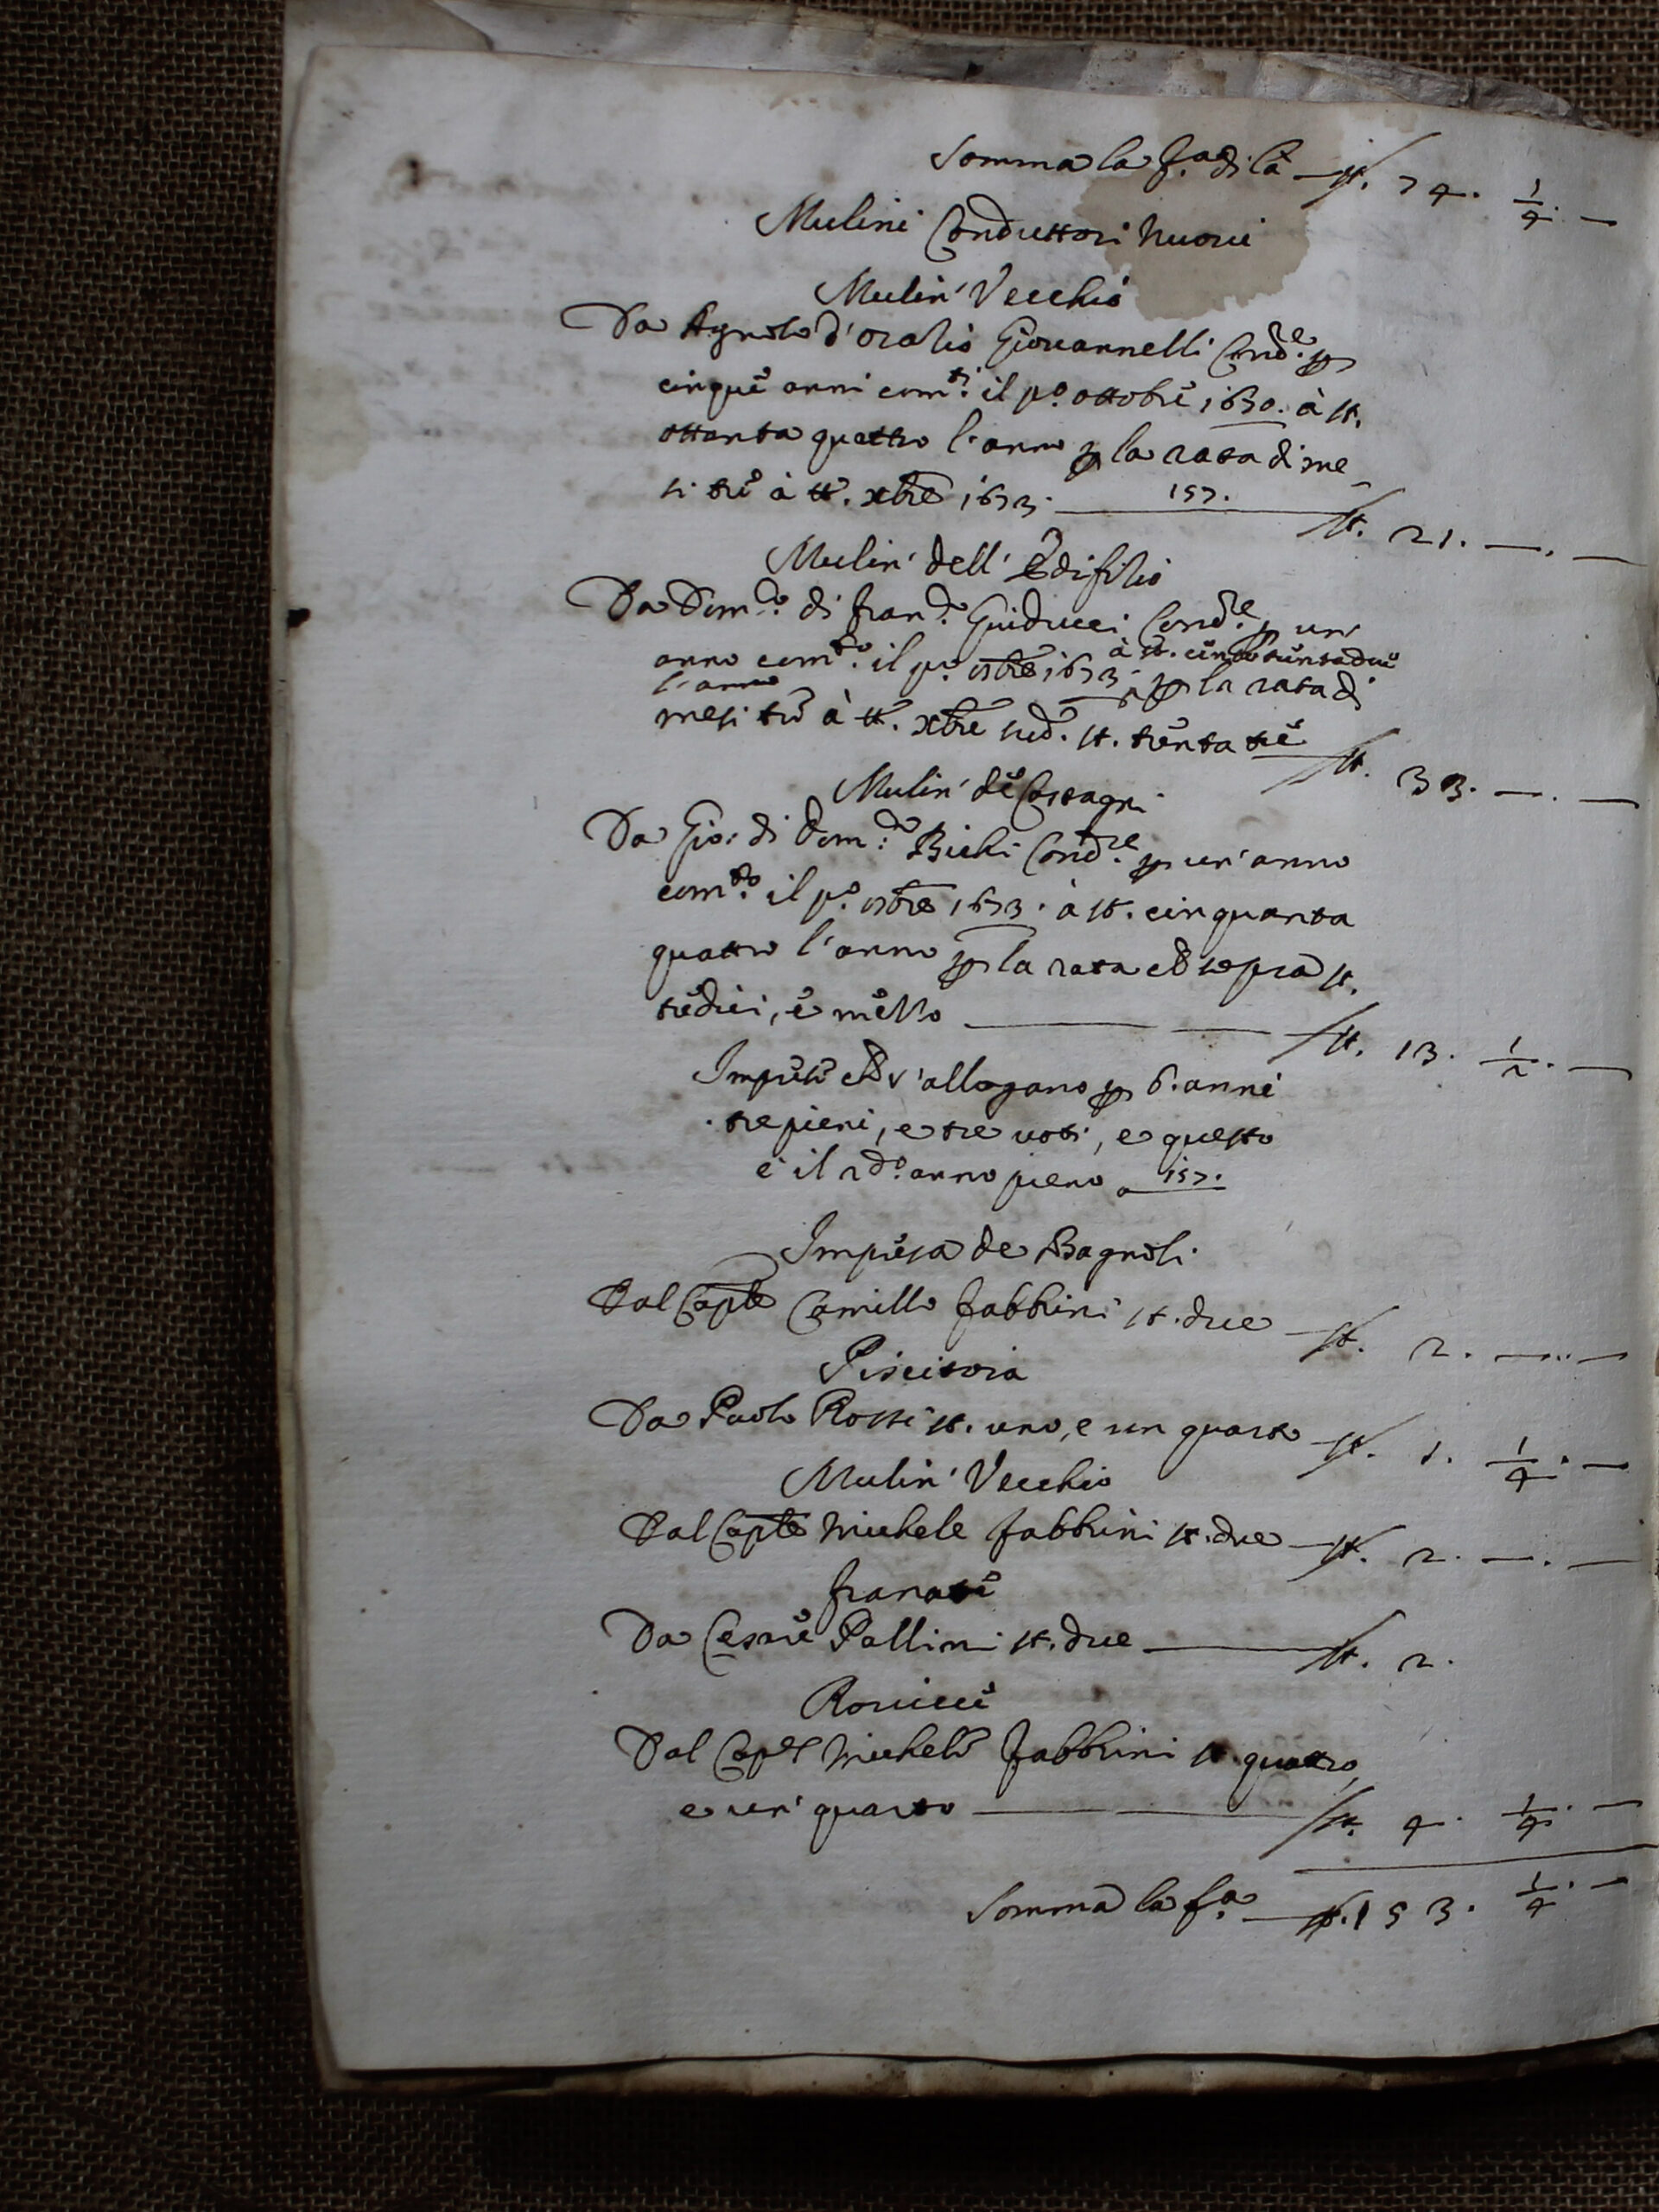 Somma la f.a di là — st. 74. 1/4. —
Mulini Conduttori nuovi
Mulin' Vecchio
Da Agnolo d'Oratio Giovannelli Cond.re p
cinque anni com.ti il p.o ottobre 1670. à st.
ottanta quattro l'anno p la rata di me_
si trè à tt.o xbre 1673. — 157. — st. 21. —. —
Mulin' dell' Edifitio
Da Dom.co di Fran.co Guiducci Cond.re p un'
à st. cento trentadue
anno com.to il p.o 8bre 1673. p la rata di
l'anno
mesi trè à tt.o xbre sud.o st. trenta tre — st. 33. —. —
Mulin' de Castagni
Da Gio: di Dom.co Bichi Cond.re p un' anno
com.to il p.o 8bre 1673. à st. cinquanta
quattro l'anno p la rata che sopra st.
tredici, e mezzo — st. 13. 1/2. —
Imprese che s'allogano p 6. anni
tre pieni, e tre voti, e questo
è il 2do. anno pieno a 157.
Impresa de Bagnoli
Dal Cap.te Camillo Fabbrini st. due — st. 2. —. —
Piscitoia
Da Paolo Rossi st. uno, e un quarto — st. 1. 1/4. —
Mulin' Vecchio
Dal Cap.te Michele Fabbrini st. due — st. 2. —. —
Da Cesare Pallini st. due — st. 2.
Dal Cap.te Michele Fabbrini st. quattro,
e un' quarto — st. 4. 1/4. —
Somma la f.a — st. 153. 1/4. —